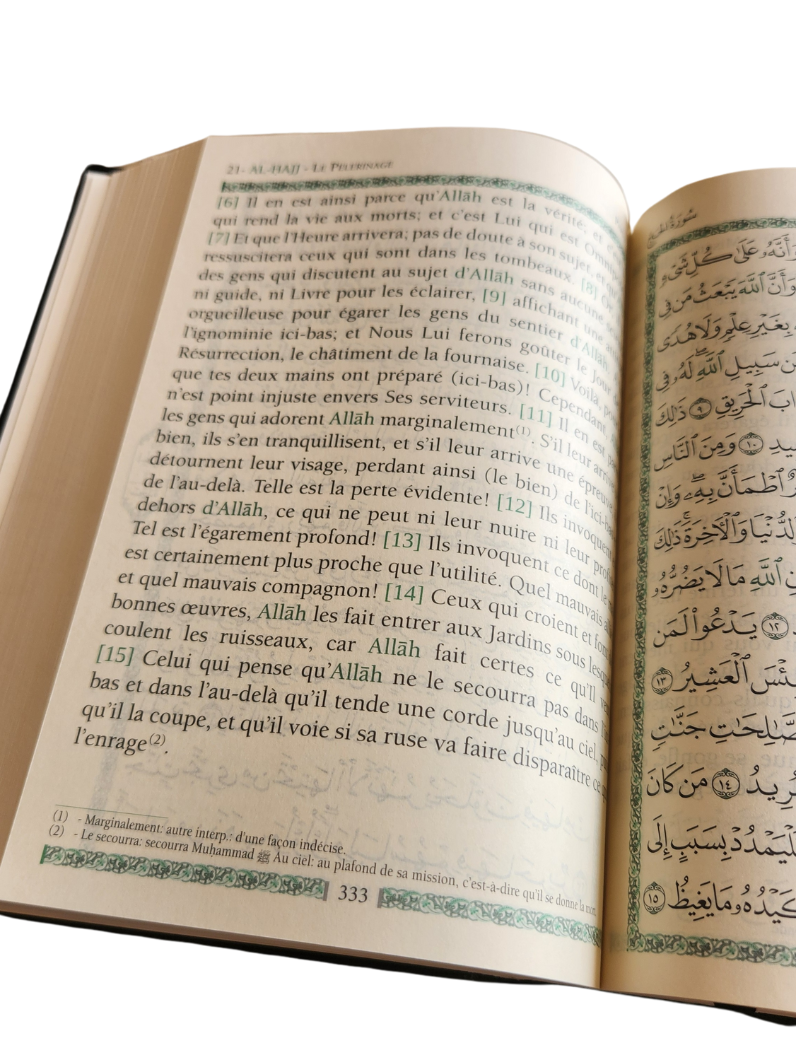 21- AL-HAJJ - LE PÈLERINAGE
[6] Il en est ainsi parce qu'Allāh est la vérité; et
qui rend la vie aux morts; et c'est Lui qui est
[7] Et que l'Heure arrivera; pas de doute à son sujet, et
ressuscitera ceux qui sont dans les tombeaux. [8]
des gens qui discutent au sujet d'Allāh sans aucune
ni guide, ni Livre pour les éclairer, [9] affichant une
orgueilleuse pour égarer les gens du sentier d'Allāh
l'ignominie ici-bas; et Nous Lui ferons goûter le Jour
Résurrection, le châtiment de la fournaise. [10] Voilà,
que tes deux mains ont préparé (ici-bas)! Cependant
n'est point injuste envers Ses serviteurs. [11] Il en est
les gens qui adorent Allāh marginalement(1). S'il leur
bien, ils s'en tranquillisent, et s'il leur arrive une épreuve
détournent leur visage, perdant ainsi (le bien) de l'ici-
de l'au-delà. Telle est la perte évidente! [12] Ils invoquent
dehors d'Allāh, ce qui ne peut ni leur nuire ni leur
Tel est l'égarement profond! [13] Ils invoquent ce dont le
est certainement plus proche que l'utilité. Quel mauvais
et quel mauvais compagnon! [14] Ceux qui croient et font
bonnes œuvres, Allāh les fait entrer aux Jardins sous
coulent les ruisseaux, car Allāh fait certes ce qu'Il
[15] Celui qui pense qu'Allāh ne le secourra pas dans
bas et dans l'au-delà qu'il tende une corde jusqu'au ciel,
qu'il la coupe, et qu'il voie si sa ruse va faire disparaître
l'enrage(2).
(1) - Marginalement: autre interp.: d'une façon indécise.
(2) - Le secourra: secourra Muḥammad ﷺ Au ciel: au plafond de sa mission, c'est-à-dire qu'il se donne la mort.
333
سورة الحج
وَأَنَّهُ عَلَىٰ كُلِّ شَيْءٍ
وَأَنَّ ٱللَّهَ يَبْعَثُ مَن فِي
بِغَيْرِ عِلْمٍ وَلَا هُدًى
عَن سَبِيلِ ٱللَّهِ لَهُ فِي
ٱلْحَرِيقِ ٩ ذَٰلِكَ
١٠ وَمِنَ ٱلنَّاسِ
ٱطْمَأَنَّ بِهِ وَإِنْ
ٱلدُّنْيَا وَٱلْآخِرَةَ ذَٰلِكَ
ٱللَّهِ مَا لَا يَضُرُّهُ
١٢ يَدْعُوا۟ لَمَن
ٱلْعَشِيرُ ١٣
ٱلصَّٰلِحَٰتِ جَنَّٰتٍ
يُرِيدُ ١٤ مَن كَانَ
فَلْيَمْدُدْ بِسَبَبٍ إِلَى
كَيْدُهُ مَا يَغِيظُ ١٥